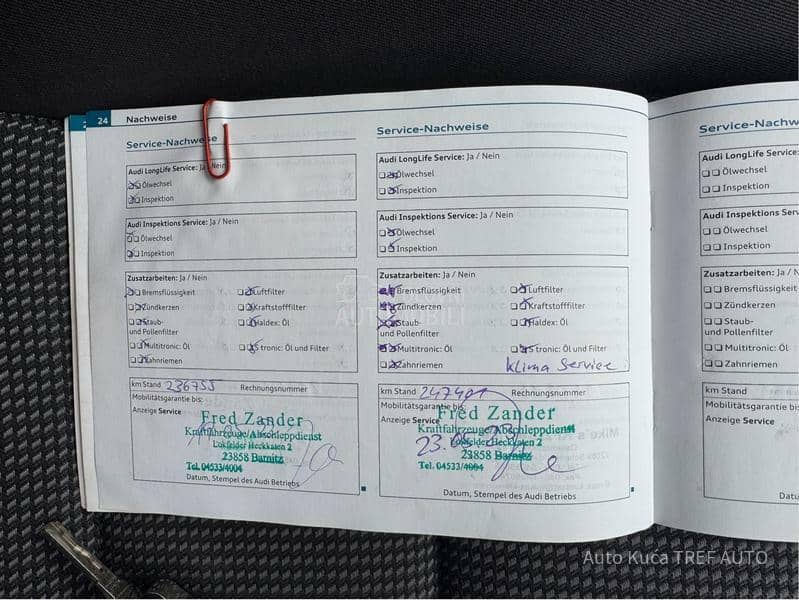 24 Nachweise
Service-Nachweise
Audi LongLife Service: Ja / Nein
Ölwechsel
Inspektion
Audi Inspektions Service: Ja / Nein
Ölwechsel
Inspektion
Zusatzarbeiten: Ja / Nein
Bremsflüssigkeit Luftfilter
Zündkerzen Kraftstofffilter
Staub- Haldex: Öl
und Pollenfilter
Multitronic: Öl S tronic: Öl und Filter
Zahnriemen
km Stand 236755 Rechnungsnummer
Mobilitätsgarantie bis:
Anzeige Service
Fred Zander
Kraftfahrzeuge/Abschleppdienst
Lokfelder Heckkaten 2
23858 Barnitz
Tel. 04533/4004
Datum, Stempel des Audi Betriebs
Service-Nachweise
Audi LongLife Service: Ja / Nein
Ölwechsel
Inspektion
Audi Inspektions Service: Ja / Nein
Ölwechsel
Inspektion
Zusatzarbeiten: Ja / Nein
Bremsflüssigkeit Luftfilter
Zündkerzen Kraftstofffilter
Staub- Haldex: Öl
und Pollenfilter
Multitronic: Öl S tronic: Öl und Filter
Zahnriemen Klima Service
km Stand Rechnungsnummer
Mobilitätsgarantie bis:
Anzeige Service
Fred Zander
Kraftfahrzeuge/Abschleppdienst
Lokfelder Heckkaten 2
23858 Barnitz
Tel. 04533/4004
Datum, Stempel des Audi Betriebs
Service-Nachw
Audi LongLife Service:
Ölwechsel
Inspektion
Audi Inspektions Serv
Ölwechsel
Inspektion
Zusatzarbeiten: Ja / N
Bremsflüssigkeit
Zündkerzen
Staub-
und Pollenfilter
Multitronic: Öl
Zahnriemen
km Stand
Mobilitätsgarantie bis:
Anzeige Service
Datu
Auto Kuća TREF AUTO